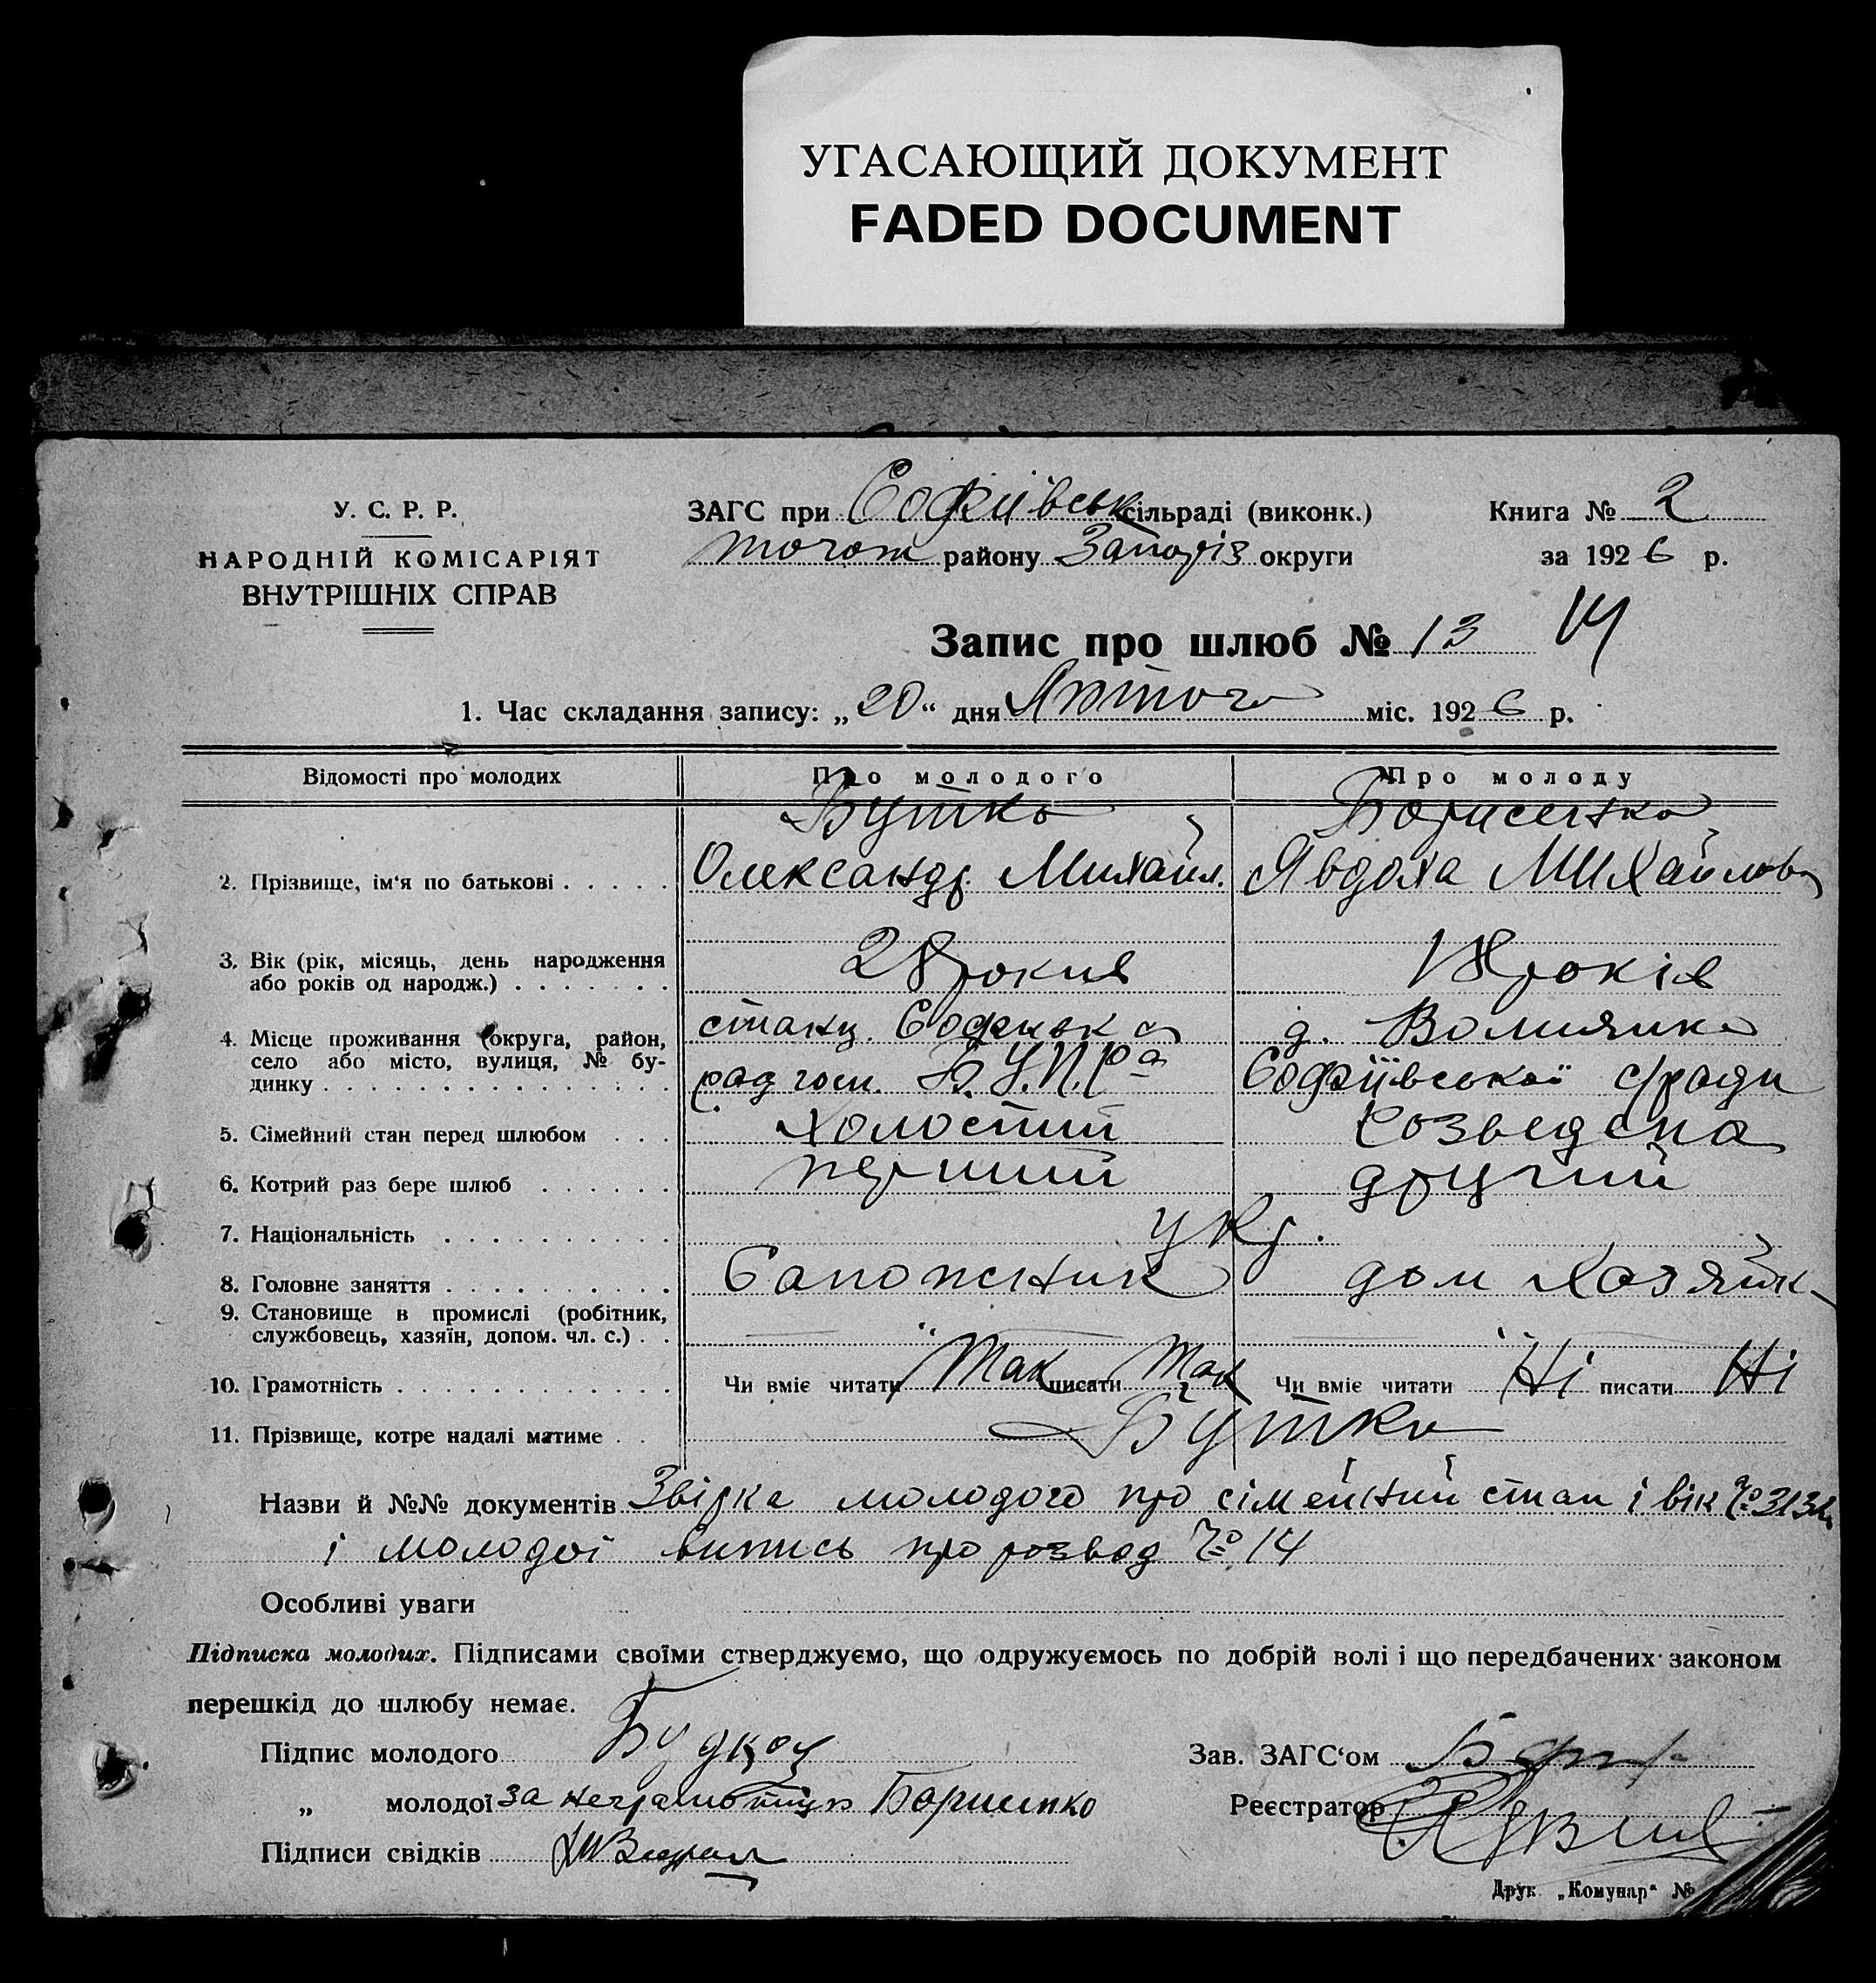 УГАСАЮЩИЙ ДОКУМЕНТ
FADED DOCUMENT
У. С. Р. Р.
НАРОДНІЙ КОМІСАРІЯТ
ВНУТРІШНІХ СПРАВ
ЗАГС при Софіївськ сільраді (виконк.)
Токмак району Запоріз округи
Книга № 2
за 1926 р.
Запис про шлюб № 13 14
1. Час складання запису: „20“ дня Лютого міс. 1926 р.
Відомості про молодих
Про молодого
Про молоду
2. Прізвище, ім'я по батькові . . . . .
Бутко
Олександр. Михайл.
Борисенко
Явдоха Михайлов
3. Вік (рік, місяць, день народження
або років од народж.) . . . . . . .
28 рокив
18 років
4. Місце проживання (округа, район,
село або місто, вулиця, № бу-
динку . . . . . . . . . . . . . . .
станц. Софіевка
рад госп. Б.У.П.Ра
д.
Софіївської с/ради
5. Сімейний стан перед шлюбом . . .
Холостий
Розведена
6. Котрий раз бере шлюб . . . . . .
перший
другий
7. Національність . . . . . . . . . .
укр.
8. Головне заняття . . . . . . . . . .
Сапожник
дом хозяйк
9. Становище в промислі (робітник,
службовець, хазяїн, допом. чл. с.) . .
10. Грамотність . . . . . . . . . . . .
Чи вміє читати Так писати Так
Чи вміє читати Ні писати Ні
11. Прізвище, котре надалі матиме . .
Бутко
Назви й №№ документів Звірка молодого про сімейний стан і вік №
і молодої випись про розвод № 14
Особливі уваги
Підписка молодих. Підписами своїми стверджуємо, що одружуємось по добрій волі і що передбачених законом
перешкід до шлюбу немає.
Підпис молодого
„ молодої за неграмотную Борисенко
Підписи свідків
Зав. ЗАГС'ом
Реєстратор
Друк „Комунар“ №